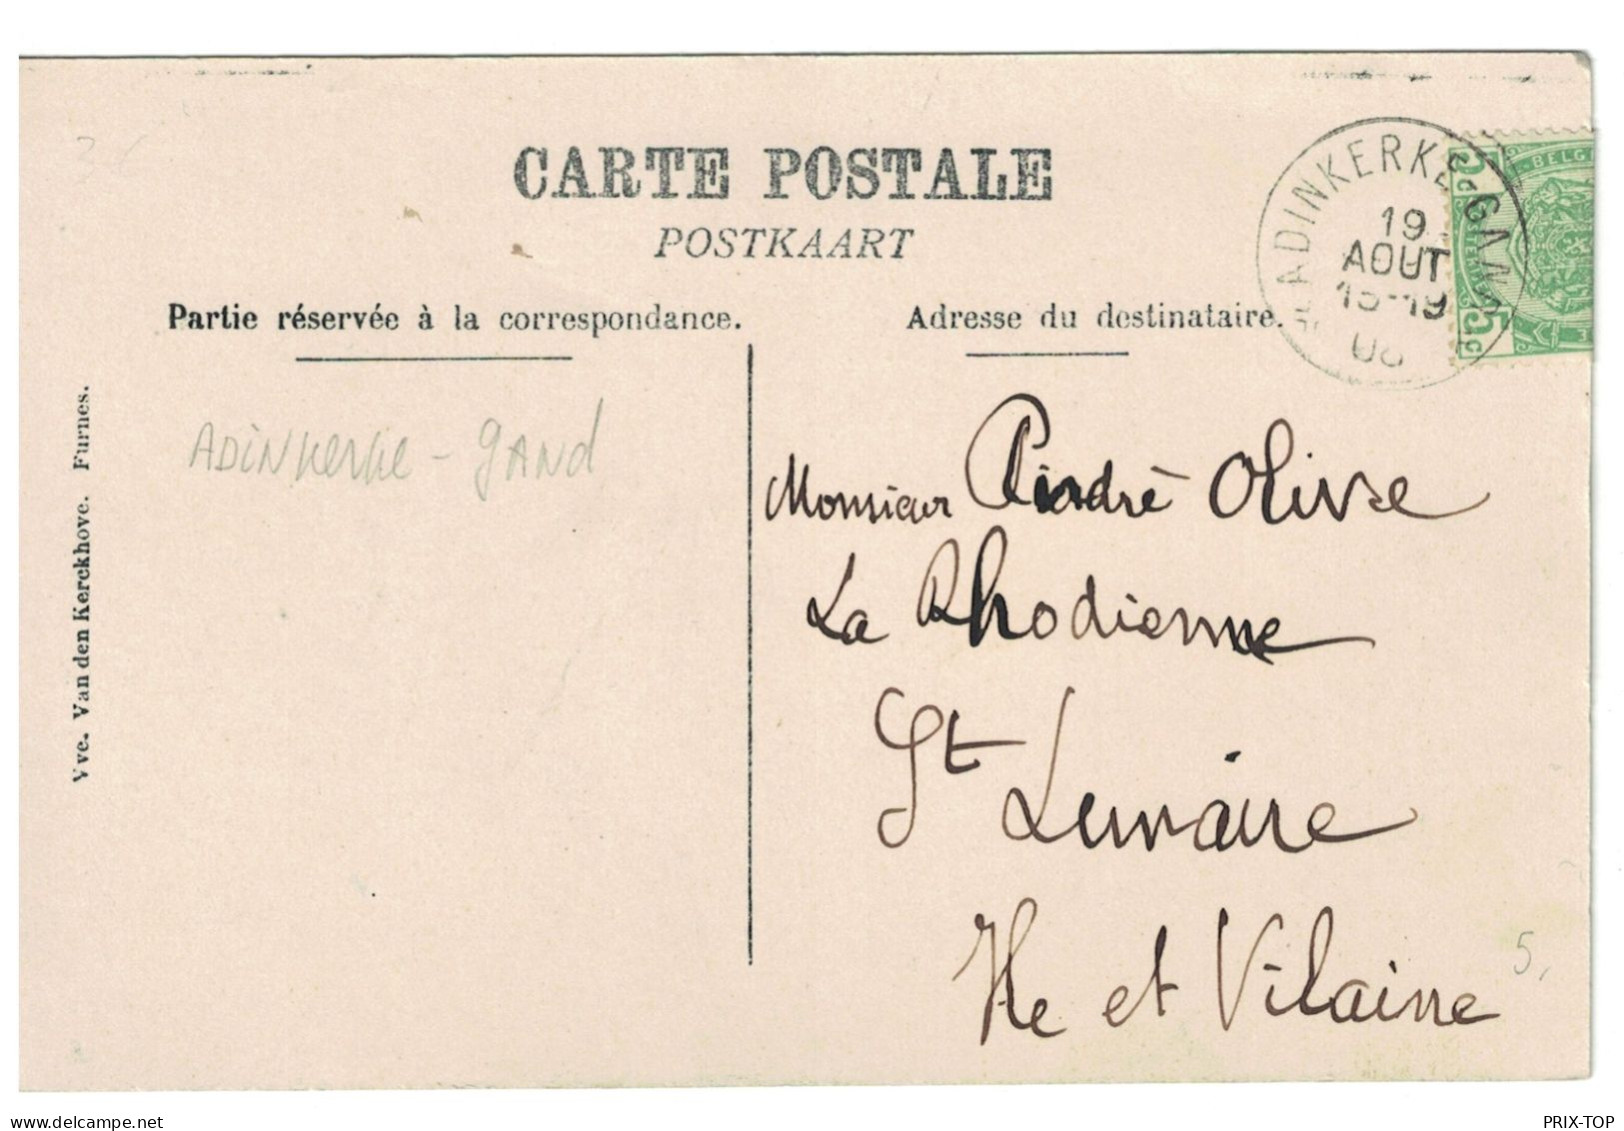 CARTE POSTALE
POSTKAART
Partie réservée à la correspondance.
Adresse du destinataire.
ADINKERKE
19
AOUT
BELGI
5c
Vve. Van den Kerckhove. Furnes.
ADINKERKE - GAND
Monsieur André Olive
La Rhodienne
St Lunaire
Ille et Vilaine
5,
www.delcampe.net
PRIX-TOP